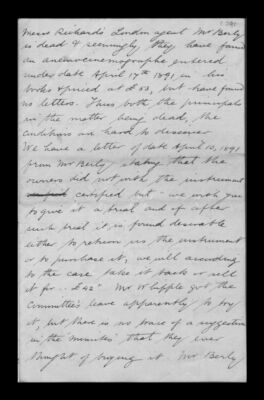 Messrs Richards' London agent Mr Berly
is dead & seemingly, they have found
an anemocinemographe entered
under date April 17th 1891 in his
books priced at £53, but have found
no letters. Thus both the principals
in the matter being dead, the
conditions are hard to discover
We have a letter of date April 10, 1891
from Mr Berly stating that the
owners did not wish the instrument
certified but "we wish you
to give it a trial and if after
such trial it is found desirable
either to return us the instrument
or to purchase it, we will according
to the case take it back or sell
it for .. £42" Mr Whipple got the
Committee's leave apparently to try
it, but there is no trace of a suggestion
in the 'minutes' that they ever
thought of buying it. Mr Berly